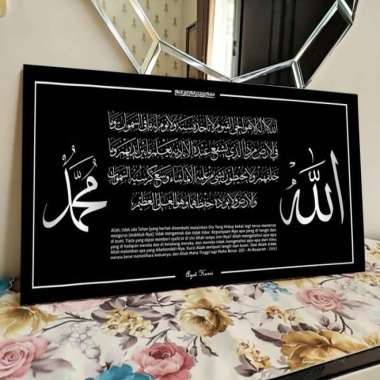 الله لا اله الا هو الحي القيوم لا تأخذه سنة ولا نوم له ما في السموات وما
في الارض من ذا الذي يشفع عنده الا باذنه يعلم ما بين ايديهم وما
خلفهم ولا يحيطون بشيء من علمه الا بما شاء وسع كرسيه السموات
والارض ولا يئوده حفظهما وهو العلي العظيم
الله
محمد
Allah, tidak ada Tuhan (yang berhak disembah) melainkan Dia Yang Hidup kekal lagi terus menerus
mengurus (makhluk-Nya); tidak mengantuk dan tidak tidur. Kepunyaan-Nya apa yang di langit dan
di bumi. Tiada yang dapat memberi syafa'at di sisi Allah tanpa izin-Nya? Allah mengetahui apa-apa
yang di hadapan mereka dan di belakang mereka, dan mereka tidak mengetahui apa-apa dari ilmu
Allah melainkan apa yang dikehendaki-Nya. Kursi Allah meliputi langit dan bumi. Dan Allah tidak
merasa berat memelihara keduanya, dan Allah Maha Tinggi lagi Maha Besar. (QS : Al-Baqarah : 255)
Ayat Kursi